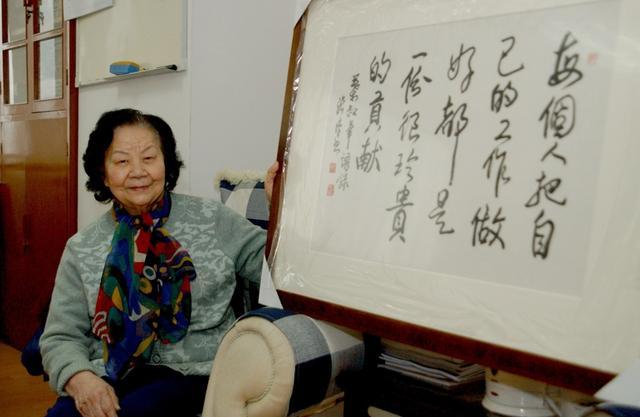 每個人把自
己的工作做
好都是
一份很珍貴
的貢献